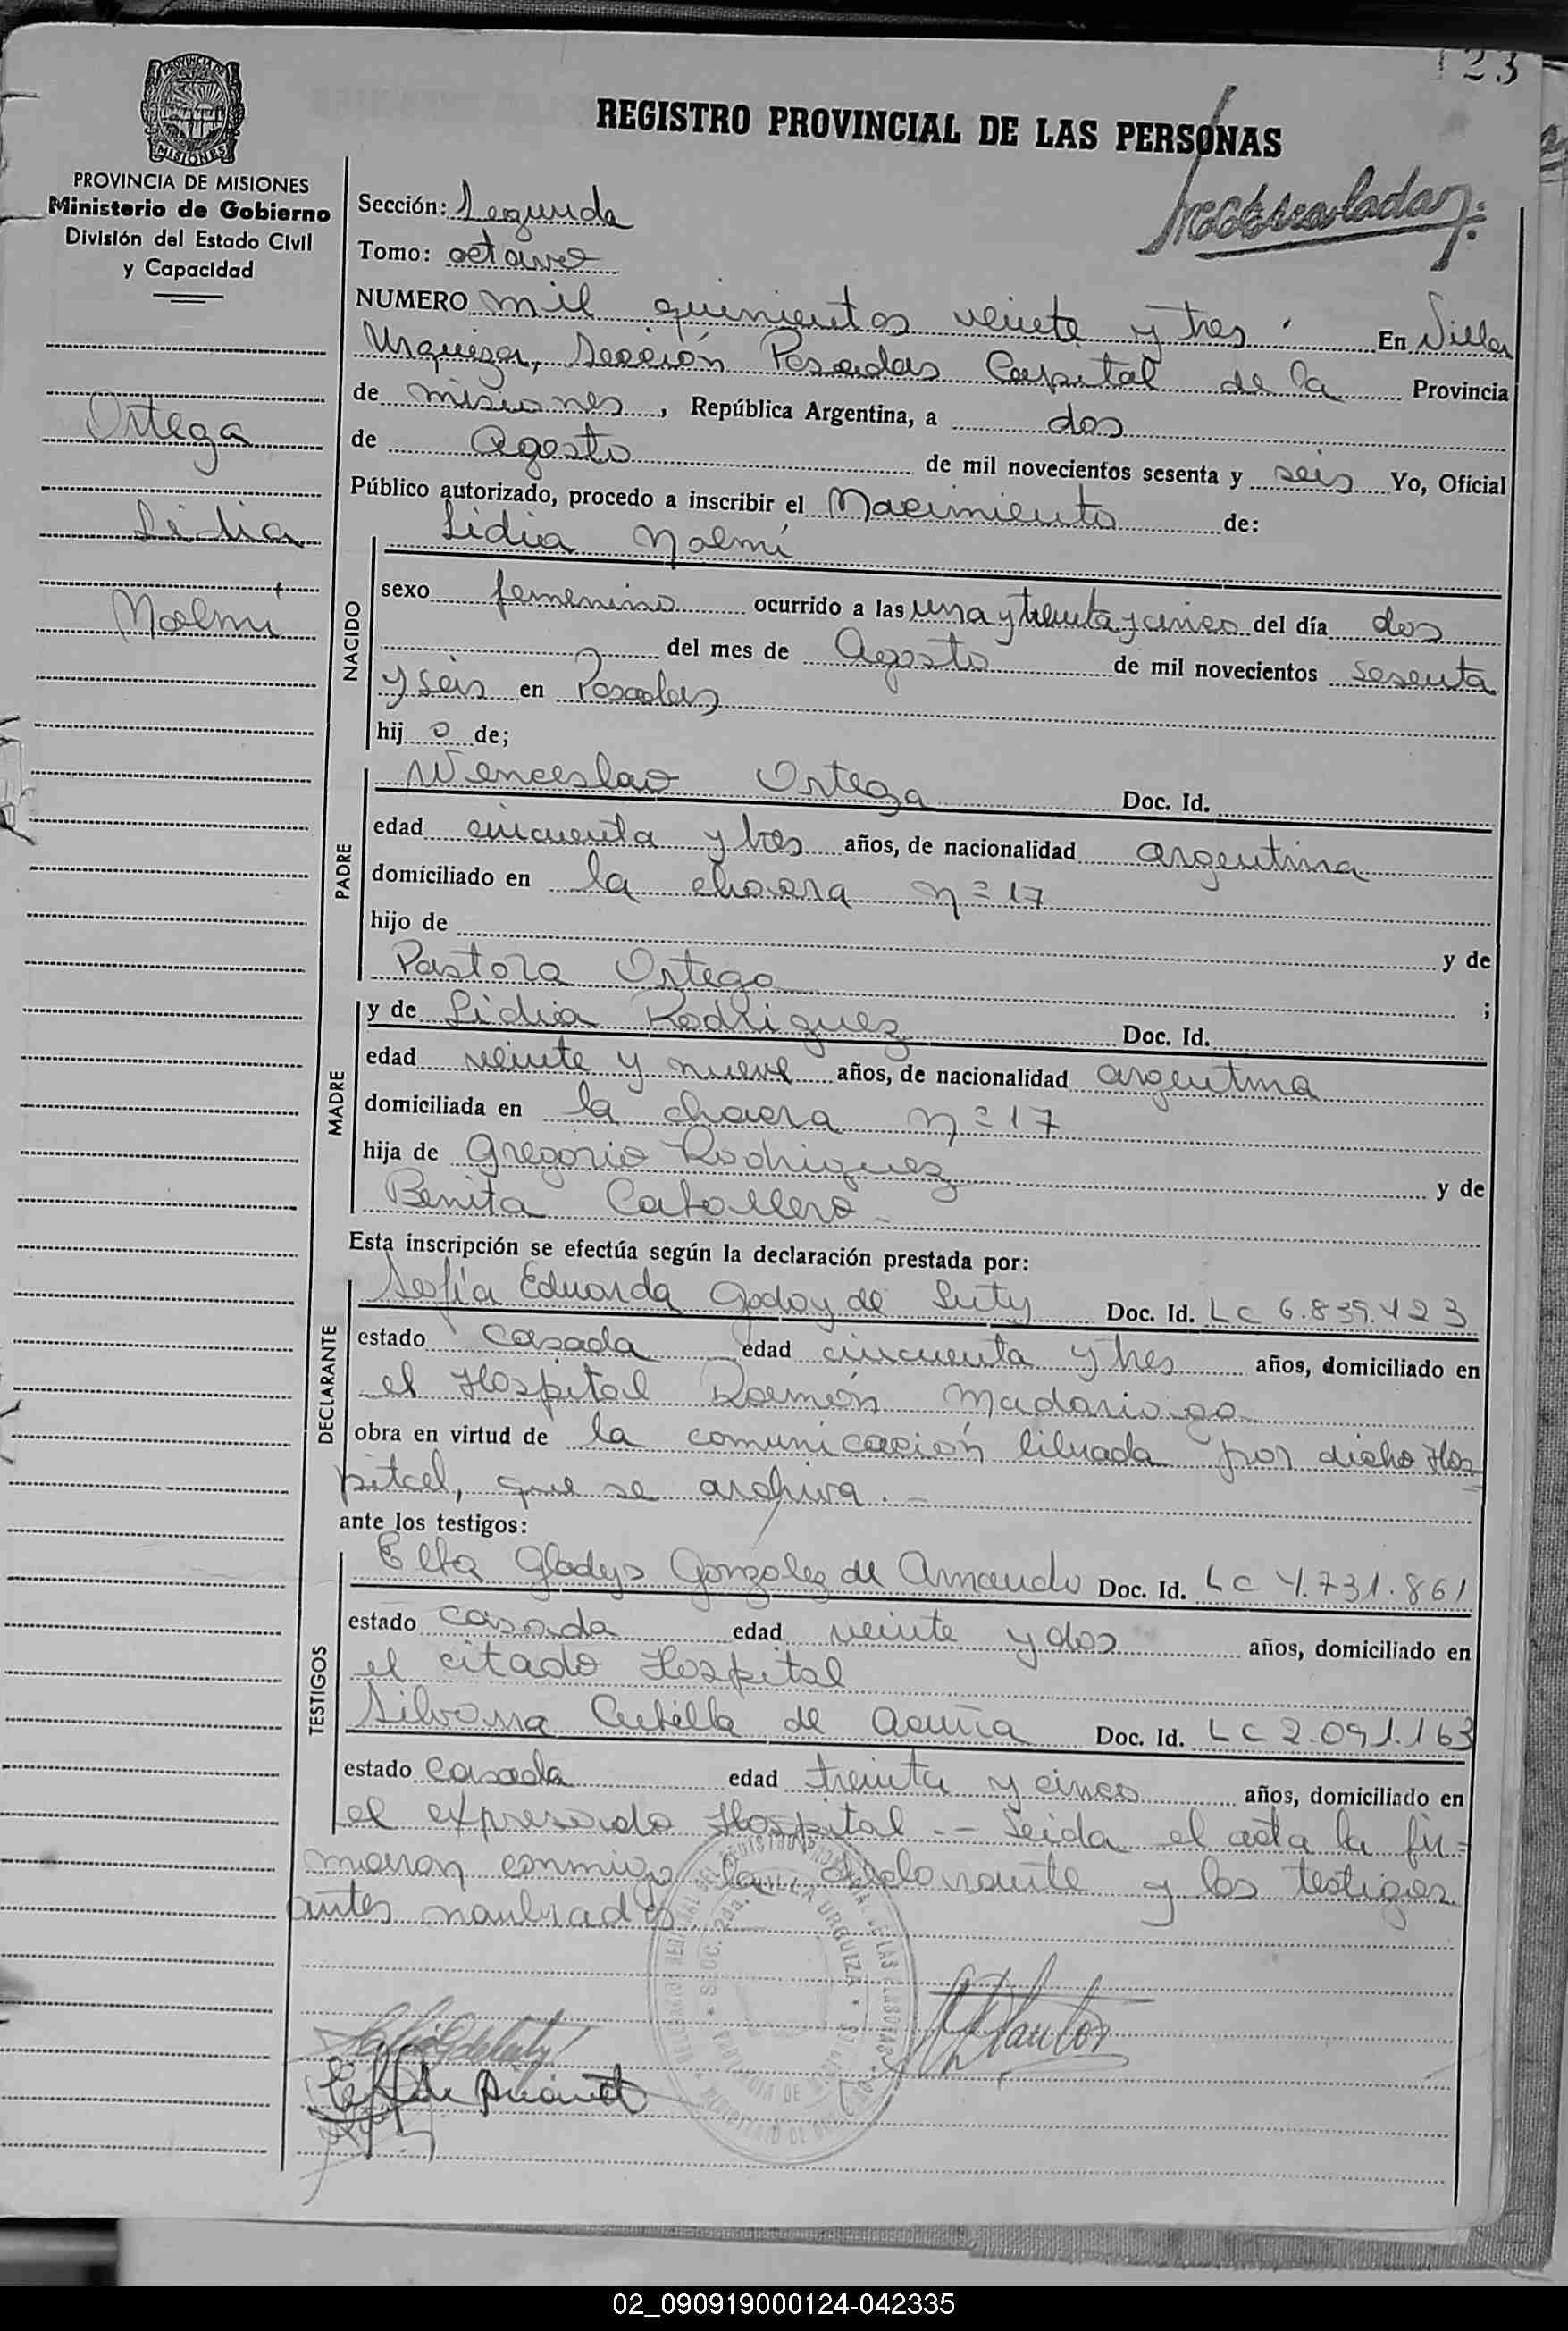 123
PROVINCIA DE MISIONES
PROVINCIA DE MISIONES
Ministerio de Gobierno
División del Estado Civil
y Capacidad
Ortega
Lidia
Noemi
REGISTRO PROVINCIAL DE LAS PERSONAS
Sección: Segunda
Tomo: octavo
NUMERO mil quinientos veinte y tres. En Villa
Urquiza, Sección Posadas Capital de la Provincia
de misiones, República Argentina, a dos
de Agosto de mil novecientos sesenta y seis Yo, Oficial
Público autorizado, procedo a inscribir el Nacimiento de:
Lidia Noemí
NACIDO
sexo femenino ocurrido a las una y treinta y cinco del día dos
del mes de Agosto de mil novecientos sesenta
y seis en Posadas
hij o de;
Wenceslao Ortega Doc. Id.
PADRE
edad cincuenta y tres años, de nacionalidad argentina
domiciliado en la chacra nº 17
hijo de y de
Pastora Ortega ;
y de Lidia Rodriguez Doc. Id.
MADRE
edad veinte y nueve años, de nacionalidad argentina
domiciliada en la chacra nº 17
hija de Gregorio Rodriguez y de
Benita Caballero -
Esta inscripción se efectúa según la declaración prestada por:
Sofía Eduarda Godoy de Doc. Id. LC 6.839.423
DECLARANTE
estado Casada edad cincuenta y tres años, domiciliado en
el Hospital Ramón Madariaga
obra en virtud de la comunicación librada por dicho Hos
pital, que se archiva. -
ante los testigos:
Elba Gladys Gonzalez de Doc. Id. LC 4.731.861
TESTIGOS
estado Casada edad veinte y dos años, domiciliado en
el citado Hospital
Silvana de Acuña Doc. Id. LC 2.091.163
estado Casada edad treinta y cinco años, domiciliado en
el expresado Hospital -- Leida el acta la fir=
maron conmigo la declarante y los testigos
antes nombrados
SECC. 2da. VILLA URQUIZA
02_090919000124-042335